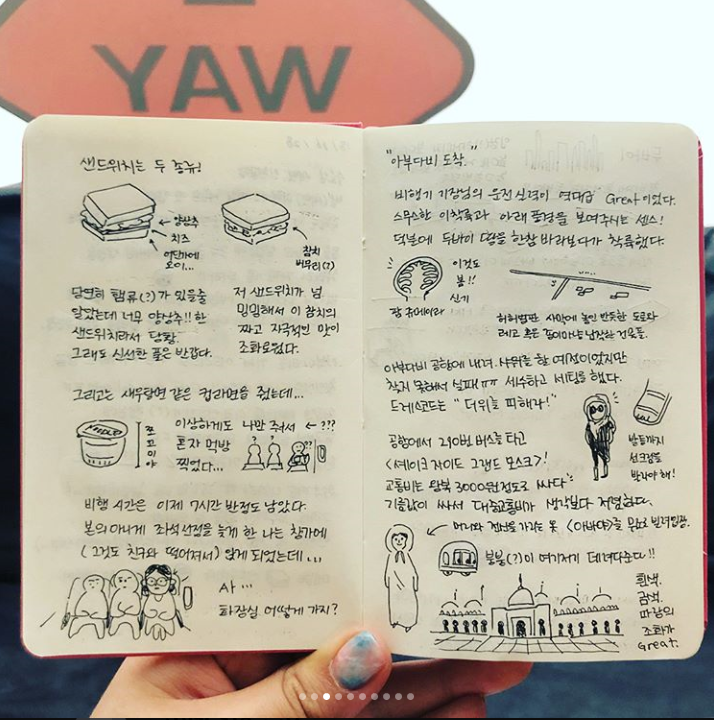 WAY
샌드위치는 두 종류!
양상추
치즈
어딘가에
오이...
참치
버무리(?)
당연히 햄류(?)가 있을줄
알았는데 너무 양상추!! 한
샌드위치라서 당황.
그래도 신선한 풀은 반갑다.
저 샌드위치가 넘
밍밍해서 이 참치의
짜고 자극적인 맛이
조화로웠다.
그리고는 새우탕면 같은 컵라면을 줬는데...
NOODLE
쪼
꼬
미
야
이상하게도 나만 줘서 ← ???
혼자 먹방
찍었다...
비행 시간은 이제 7시간 반정도 남았다.
본의 아니게 좌석선정을 늦게 한 나는 창가에
(그것도 친구와 떨어져서) 앉게 되었는데...
Ar ...
화장실 어떻게 가지?
"아부다비 도착."
비행기 기장님의 운전실력이 역대급 Great이었다.
스무스한 이착륙과 아래 풍경을 보여주시는 센스!
덕분에 두바이 땅을 한참 바라보다가 착륙했다.
이것도
봄!!
신기
팜 쥬메이라
허허벌판 사막에 놓인 반듯한 도로와
레고 혹은 종이마냥 납작한 건물들.
아부다비 공항에 내려 샤워를 할 예정이었지만
찾지 못해서 실패ㅠㅠ 세수하고 세팅을 했다.
드레스코드는 "더위를 피해라!"
발등까지
선크림을
발라야 해!
공항에서 201번 버스를 타고
<셰이크 자이드 그랜드 모스크>!
교통비는 왕복 3000원정도로 싸다
기름값이 싸서 대중교통비가 생각보다 저렴하다.
머리와 전신을 가리는 옷 <아바야>를 무료로 빌려입음.
붕붕(?)이 여기저기 데려다준다!!
흰색,
금색,
파랑의
조화가
Great.